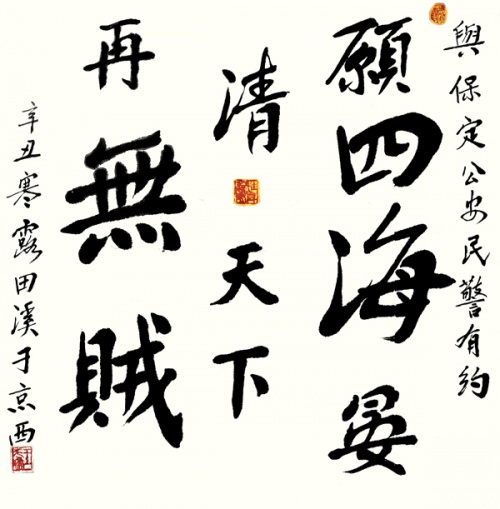 與保定公安民警有约
願四海晏
清天下
再無賊
辛丑寒露田溪于京西